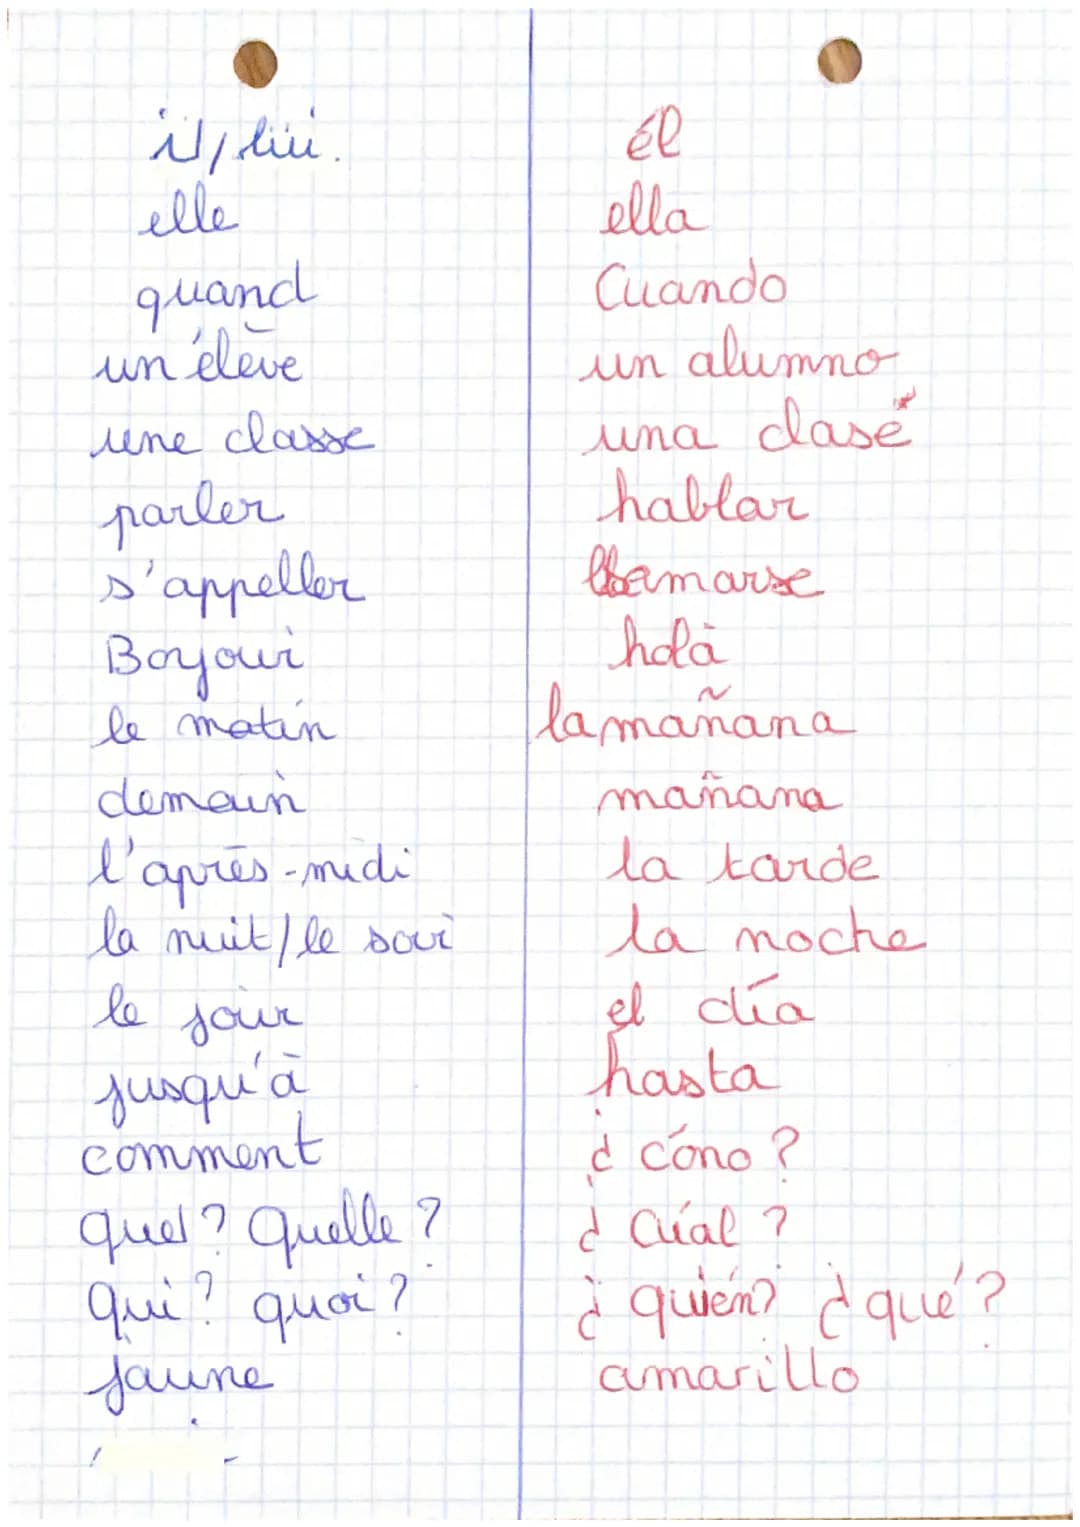 il/lui. él
elle ella
quand Cuando
un élève un alumno
une classe una clase
parler hablar
s'appeller llamarse
Bonjour hola
le matin la mañana
demain mañana
l'après-midi la tarde
la nuit/le soir la noche
le jour el día
jusqu'à hasta
comment ¿ cóno ?
quel? Quelle? ¿ Cúal ?
qui? quoi? ¿ quién? ¿ qué?
jaune amarillo